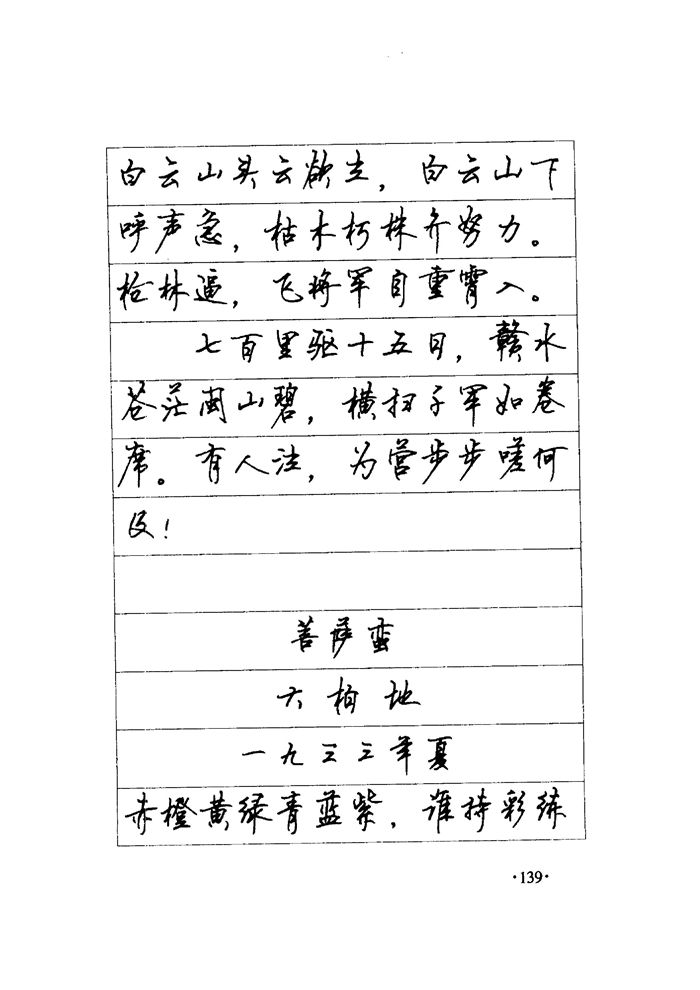 白云山头云欲立，白云山下
呼声急，枯木朽株齐努力。
枪林逼，飞将军自重霄入。
七百里驱十五日，赣水
苍茫闽山碧，横扫千军如卷
席。有人泣，为营步步嗟何
及！
菩萨蛮
大柏地
一九三三年夏
赤橙黄绿青蓝紫，谁持彩练
·139·